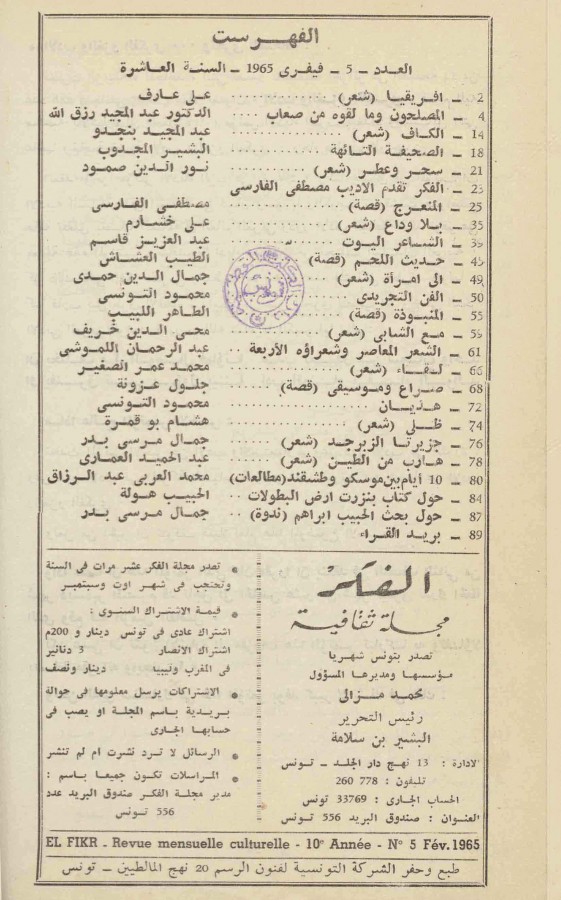 الفهرست
العدد - 5 - فيفرى 1965 - السنة العاشرة
2 - افريقيا (شعر) على عارف
4 - المصلحون وما لقوه من صعاب الدكتور عبد المجيد رزق الله
14 - الكاف (شعر) عبد المجيد بنجدو
18 - الصحيفة التائهة البشير المجدوب
21 - سحر وعطر (شعر) نور الدين صمود
23 - الفكر تقدم الاديب مصطفى الفارسى
25 - المنعرج (قصة) مصطفى الفارسى
35 - بلا وداع (شعر) على خشارم
39 - الشاعر اليوت عبد العزيز قاسم
45 - حديث اللحم (قصة) الطيب العشاش
49 - الى امرأة (شعر) جمال الدين حمدى
50 - الفن التجريدى محمود التونسى
55 - المنبوذة (قصة) الطاهر اللبيب
59 - مع الشابى (شعر) محى الدين خريف
61 - الشعر المعاصر وشعراؤه الأربعة عبد الرحمان اللموشى
66 - لقاء (شعر) محمد عمر الصغير
68 - صراع وموسيقى (قصة) جلول عزونة
72 - هذيان محمود التونسى
74 - ظلى (شعر) هشام بو قمرة
76 - جزيرتا الزبرجد (شعر) جمال مرسى بدر
78 - هارب من الطين (شعر) عبد الحميد العمارى
80 - 10 أيام بين موسكو وطشقند (مطالعات) محمد العربى عبد الرزاق
84 - حول كتاب بنزرت ارض البطولات الحبيب هولة
87 - حول بحث الحبيب ابراهم (ندوة) جمال مرسى بدر
89 - بريد القراء
الفكر
مجلة ثقافية
تصدر بتونس شهريا
مؤسسها ومديرها المسؤول
محمد مزالى
رئيس التحرير
البشير بن سلامة
لادارة : 13 نهج دار الجلد - تونس
تليفون : 778 260
الحساب الجارى : 33769 تونس
العنوان : صندوق البريد 556 تونس
• تصدر مجلة الفكر عشر مرات فى السنة
وتحتجب فى شهر اوت وسبتمبر
• قيمة الاشتراك السنوى :
اشتراك عادى فى تونس دينار و 200م
اشتراك الانصار 3 دنانير
فى المغرب وليبيا دينار ونصف
• الاشتراكات يرسل معلومها فى حوالة
بريدية باسم المجلة او يصب فى
حسابها الجارى
• الرسائل لا ترد نشرت ام لم تنشر
• المراسلات تكون جميعا باسم :
مدير مجلة الفكر صندوق البريد عدد
556 تونس
EL FIKR - Revue mensuelle culturelle - 10e Année - N° 5 Fév. 1965
طبع وحفر الشركة التونسية لفنون الرسم 20 نهج المالطيين - تونس